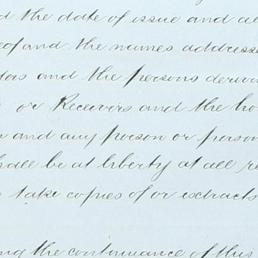 the date of issue and
and the names
and the persons
or Receivers and the
and any person or person
be at liberty at all
take copies of or extracts
the continuance of this